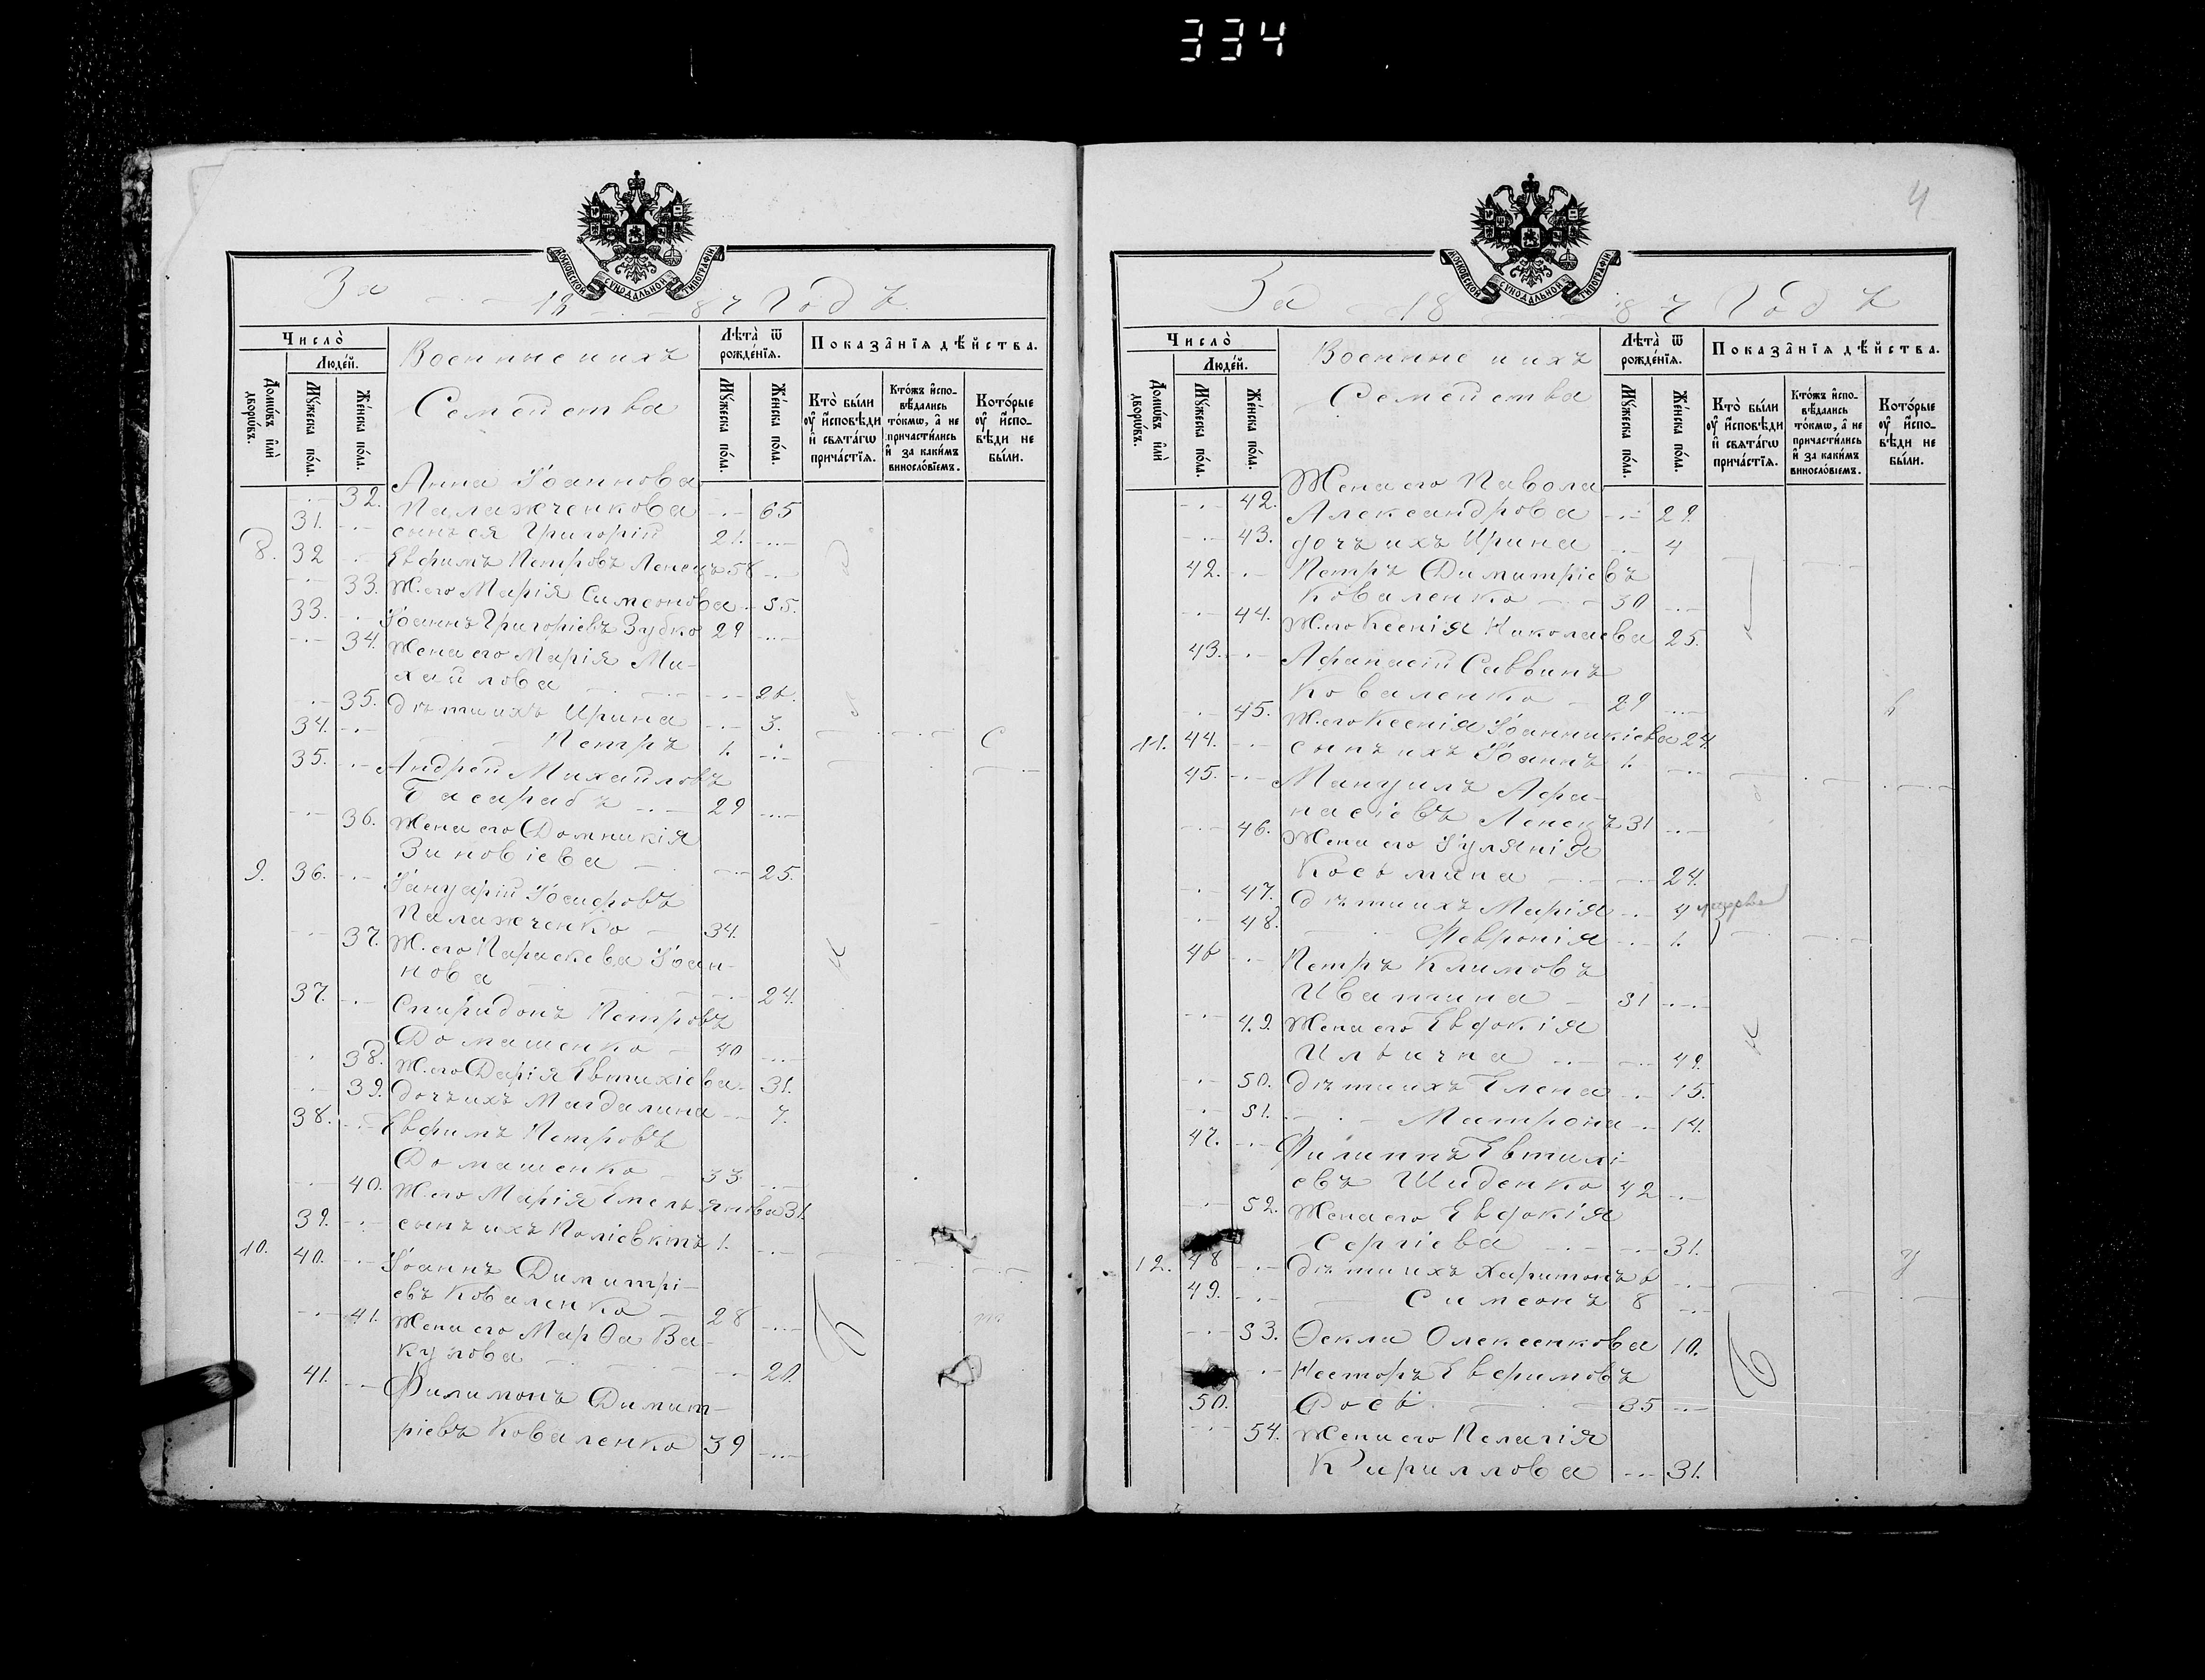 334
МОСКОВСКОЙ СѴНОДАЛЬНОЙ ТИПОГРАФІИ
За 1887 Годъ
Число̀
Людéй.
Домѡ́въ и҆лѝ дворѡ́въ.
Мꙋ́жеска по́ла.
Же́нска по́ла.
Военные и ихъ
Семейства
Лѣта̀ ѿ рожде́нїѧ.
Мꙋ́жеска по́ла.
Же́нска по́ла.
Показа̑нїѧ дѣ́йства.
Кто̀ бы́ли ᲂу҆ и҆сповѣ́ди и҆ свѧта́гѡ прича́стїѧ.
Кто́жъ и҆спо-вѣ́дались то́кмѡ, а҆ не причасти́лись и҆ за каки́мъ виносло́вїемъ.
Кото́рые ᲂу҆ и҆спо-вѣ́ди не бы́ли.
Анна Іоаннова
32. Палажченкова 65
31. сынъ ея Григорій 21.
8. 32 Евфимъ Петровъ Ленецъ 58
33. Ж. его Марія Симеонова 55.
33. Іоаннъ Григоріевъ Зубко 29
34. Жена его Марія Ми-
хайлова
35. дѣти ихъ Ирина 3.
34. Петръ 1. С
35. Андрей Михайловъ
Басарабъ 29
36. Жена его Домникія
Зиновіева 25.
9. 36. Іануарій Іосифовъ
Палажченко 34.
37. Ж. его Параскева Іоан-
нова 24.
37. Спиридонъ Петровъ
Домашенко 40
38. Ж. его Дарія Евтихіева 31.
39. дочь ихъ Магдалина 7.
38. Евфимъ Петровъ
Домашенко 33
40. Ж. его Марія Емельянова 31.
39. сынъ ихъ Поліевктъ 1.
10. 40. Іоаннъ Димитрі-
евъ Коваленко 28
41. Жена его Марѳа Ва-
кулова 20.
41. Филимонъ Димит-
ріевъ Коваленко 39
4
МОСКОВСКОЙ СѴНОДАЛЬНОЙ ТИПОГРАФІИ
За 1887 Годъ
Число̀
Людéй.
Домѡ́въ и҆лѝ дворѡ́въ.
Мꙋ́жеска по́ла.
Же́нска по́ла.
Военные и ихъ
Семейства
Лѣта̀ ѿ рожде́нїѧ.
Мꙋ́жеска по́ла.
Же́нска по́ла.
Показа̑нїѧ дѣ́йства.
Кто̀ бы́ли ᲂу҆ и҆сповѣ́ди и҆ свѧта́гѡ прича́стїѧ.
Кто́жъ и҆спо-вѣ́дались то́кмѡ, а҆ не причасти́лись и҆ за каки́мъ виносло́вїемъ.
Кото́рые ᲂу҆ и҆спо-вѣ́ди не бы́ли.
Жена его Павола
42. Александрова 29.
43. дочь ихъ Ирина 4
42. Петръ Димитріевъ
Коваленко 30
44. Ж. его Ксенія Николаева 25.
43. Афанасій Саввинъ
Коваленко 29
45. Ж. его Ксенія Іоанникіева 24.
11. 44. сынъ ихъ Іоаннъ 1.
45. Мануилъ Афа-
насіевъ Ленецъ 31
46. Жена его Іуліанія
Косьмина 24.
47. дѣти ихъ Марія 4
48. Февронія 1.
46 Петръ Климовъ
Ивашина 51
49. Жена его Евдокія
Ильична 49.
50. дѣти ихъ Елена 15.
51. Матрона 14.
47. Филиппъ Евтихі-
евъ Шиденко 42
52. Жена его Евдокія
Сергіева 31.
12. 48 дѣти ихъ Харитонъ
49. Симеонъ 8
53. Ѳекла Олексеенкова 10.
Несторъ Евфимовъ
50. Рось 35
54. Жена его Пелагія
Кириллова 31.